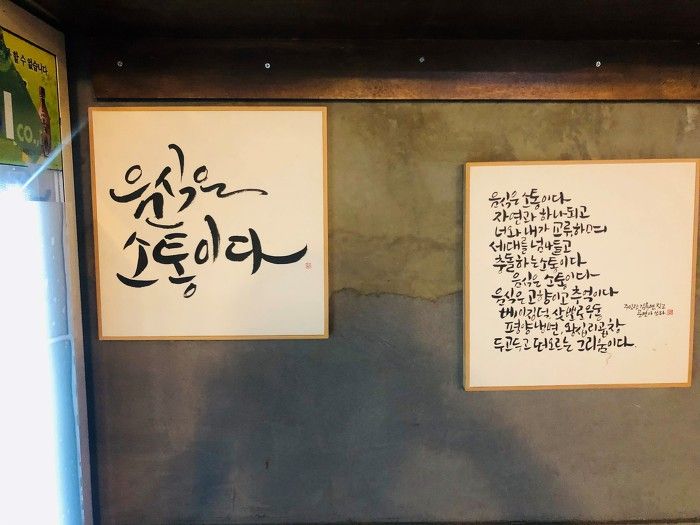 할 수 없습니다
CO
음식은
소통이다
음식은 소통이다
자연과 하나되고
너와 내가 교류하며
세대를 넘나들고
충돌하는 소통이다
음식은 소통이다
음식은 고향이고 추억이다
베이컬럭 살 발효우동
평양냉면, 와집리곱창
두고두고 떠오르는 그리움이다.